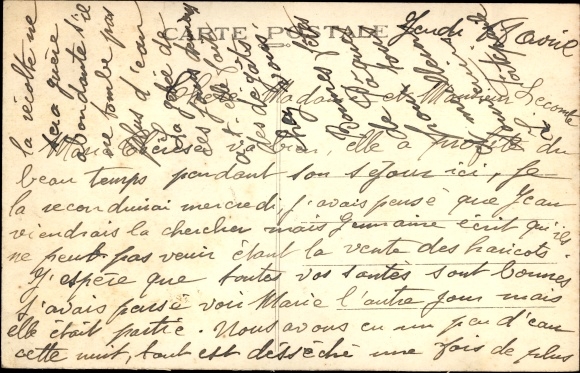 CARTE POSTALE
Jeudi avril
Chère Madame et Monsieur Lecomte
Marie Thérèse va bien, elle a profité du
beau temps pendant son séjour ici, Je
la reconduirai mercredi j'avais pensé que Jean
viendrais la chercher mais Germaine écrit qu'ils
ne peut pas venir étant la vente des haricots.
J'espère que toutes vos santés sont bonnes
j'avais pensé voir Marie l'autre jour mais
elle était partie. Nous avons eu un peu d'eau
cette nuit, tout est désséché une fois de plus
la récolte ne
sera guère
abondante s'il
ne tombe pas
plus d'eau
la gelée de
ces jours
et fait
des dégâts
chez vous
Bonnes fêtes
de Pâques